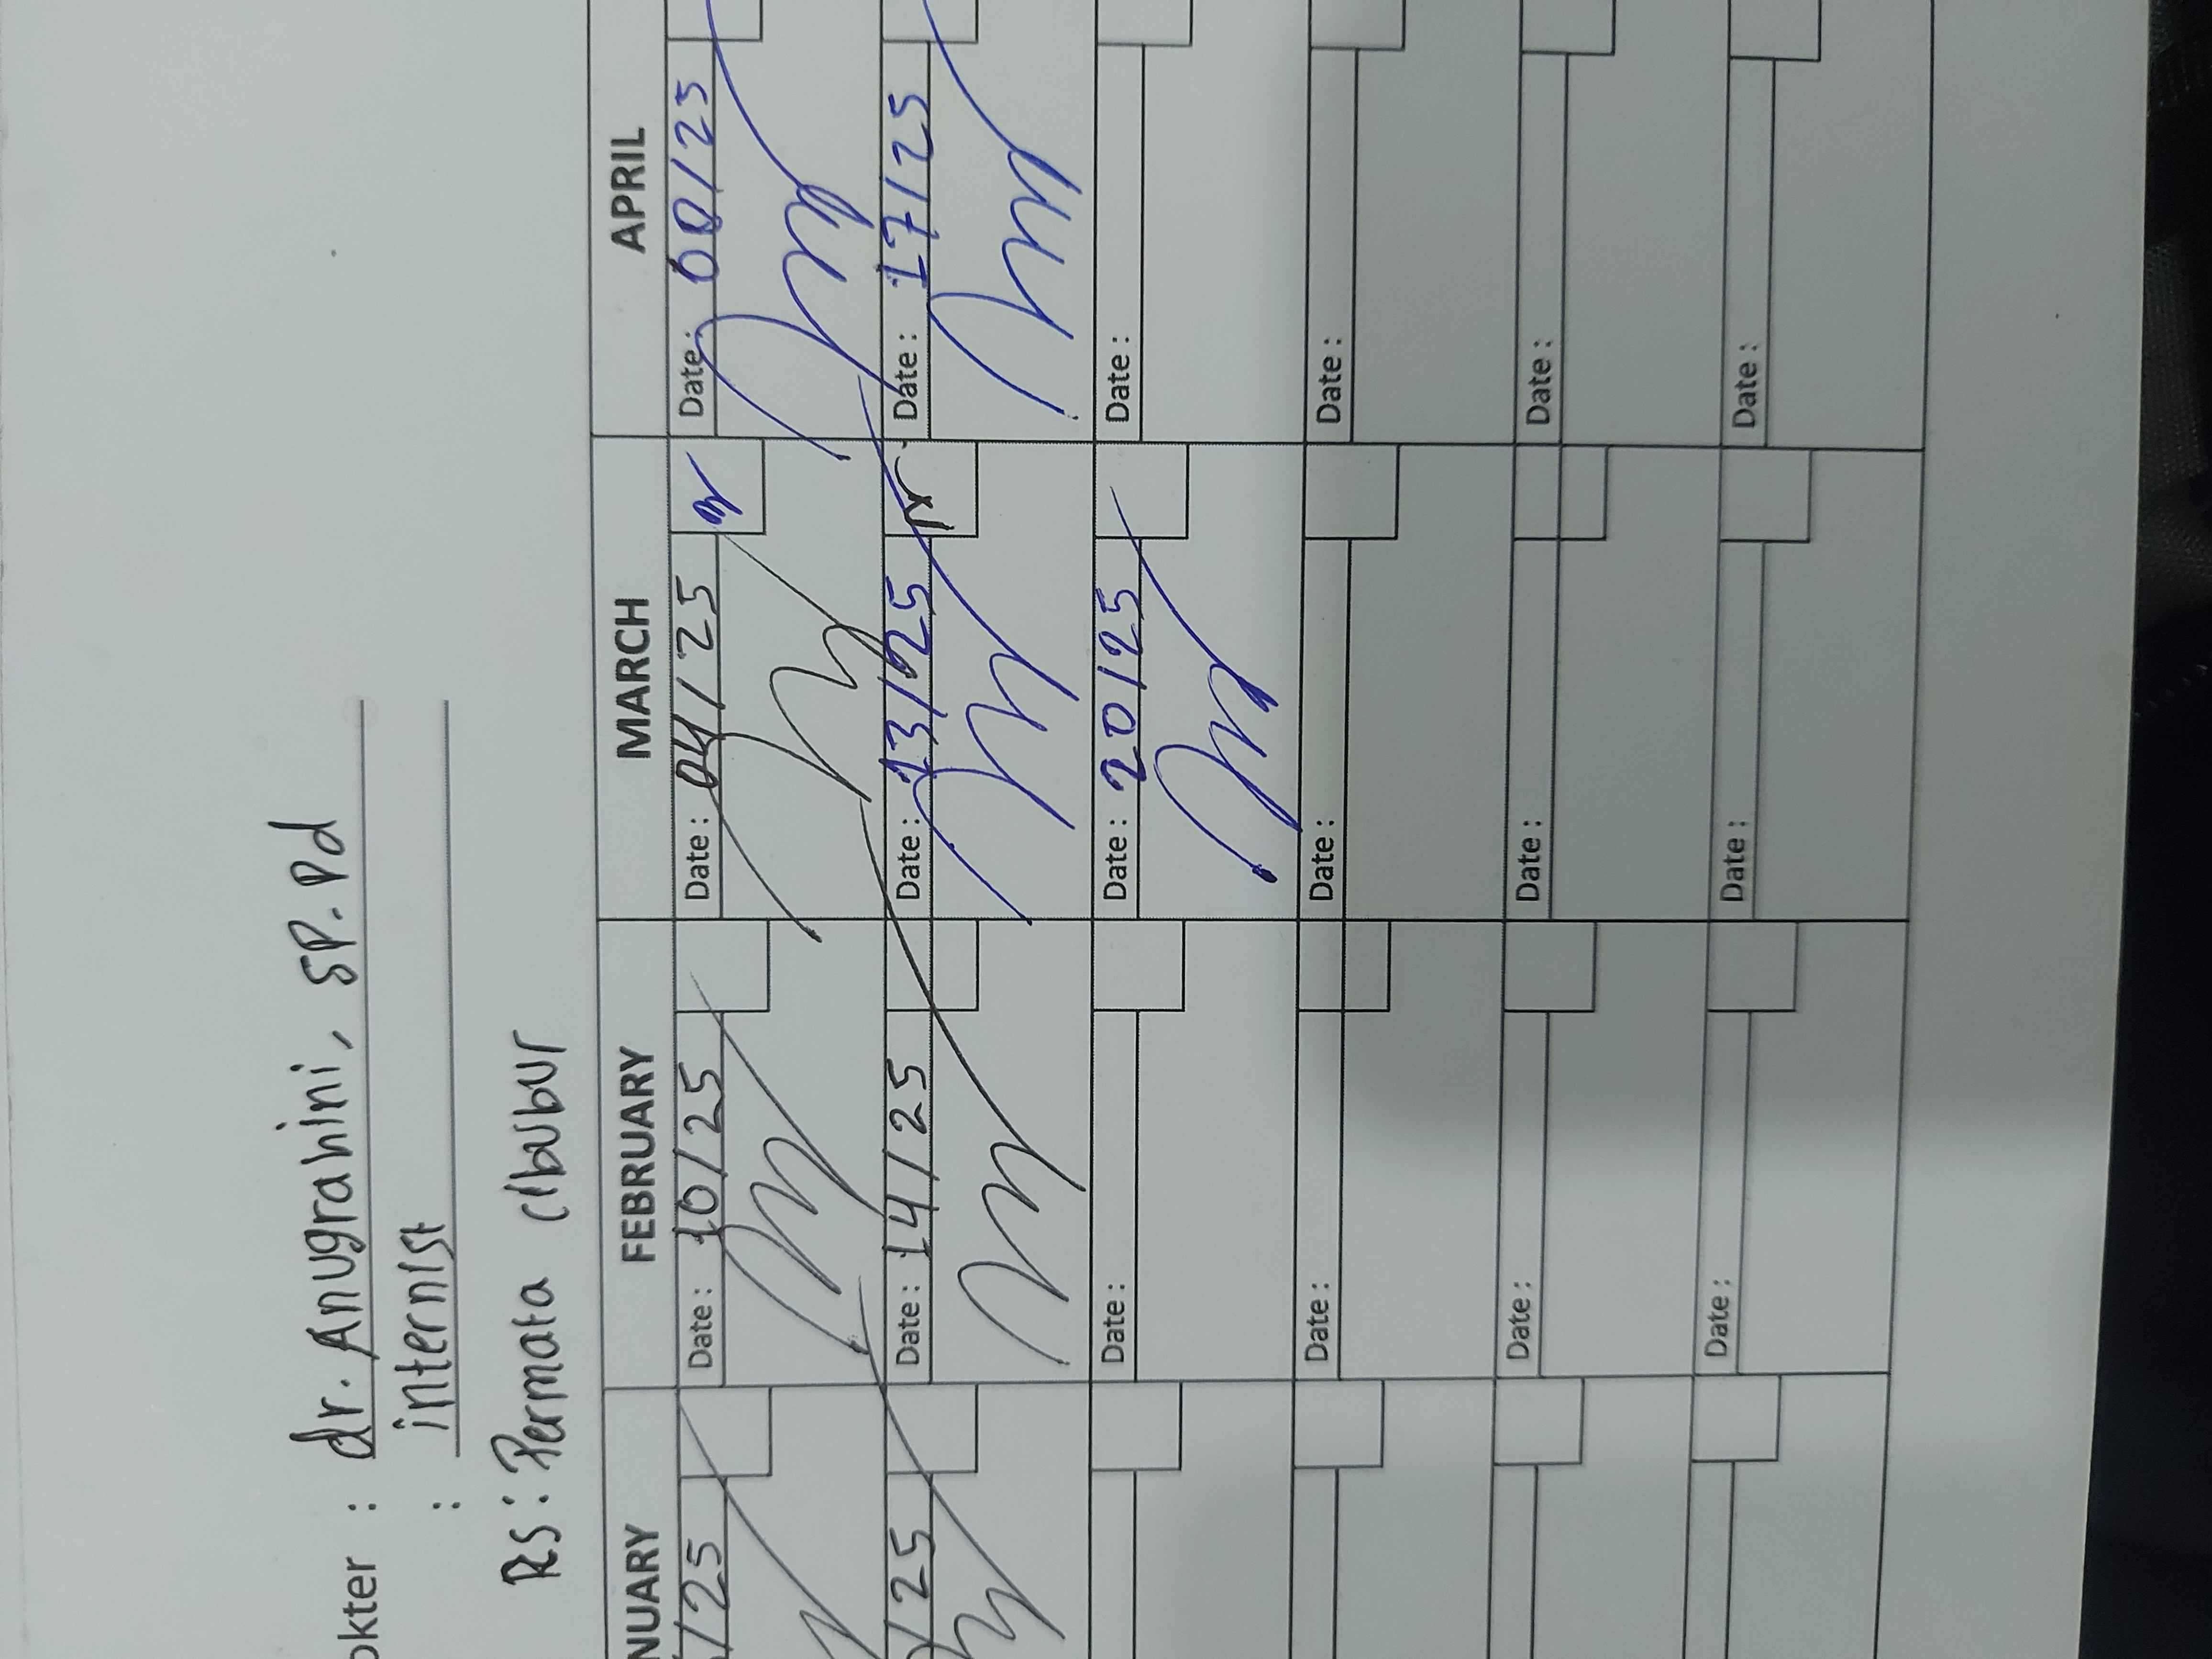 okter : dr. Anugrahini, SP.Pd
: internist
RS: Permata cibubur
NUARY FEBRUARY MARCH APRIL
/25 Date: 10/25 Date: 04/25 Date: 08/25
/25 Date: 14/25 Date: 13/25 Date: 17/25
Date: Date: 20/25 Date:
Date: Date: Date:
Date: Date: Date:
Date: Date: Date: